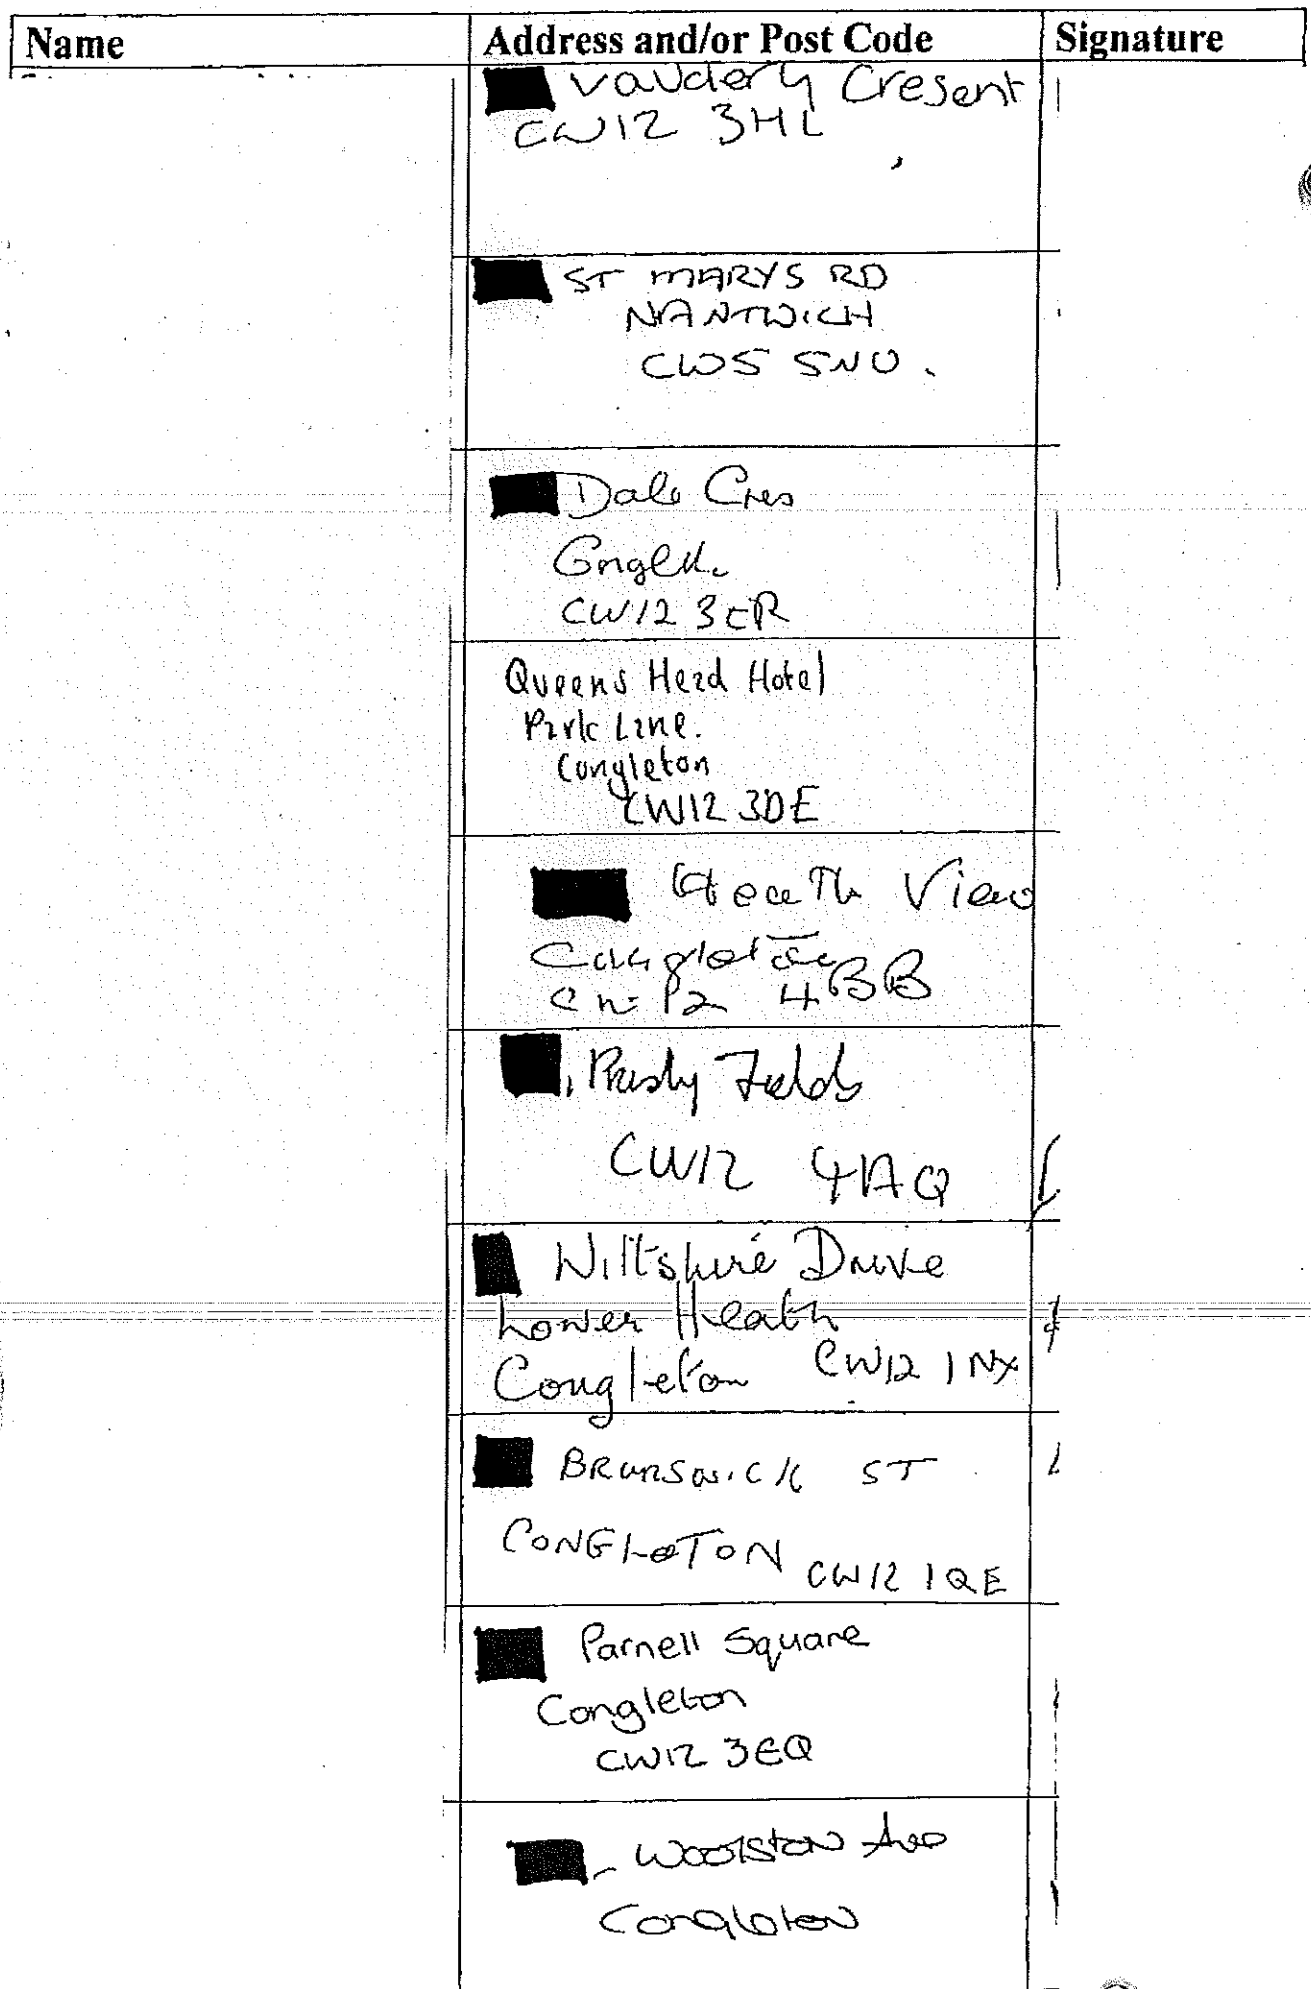 Name Address and/or Post Code Signature
Vaudery Cresent
CW12 3HL
ST MARYS RD
NANTWICH
CW5 5NU.
Dale Cres
CW12 3ER
Queens Head Hotel
Park Lane.
Congleton
CW12 3DE
Heath View
Congleton
4BB
Fields
CW12 4AQ
Wiltshire Drive
Lower Heath
Congleton CW12 1NX
BRUNSWICK ST
CONGLETON CW12 1QE
Parnell Square
Congleton
CW12 3EQ
Woolston Ave
Congleton